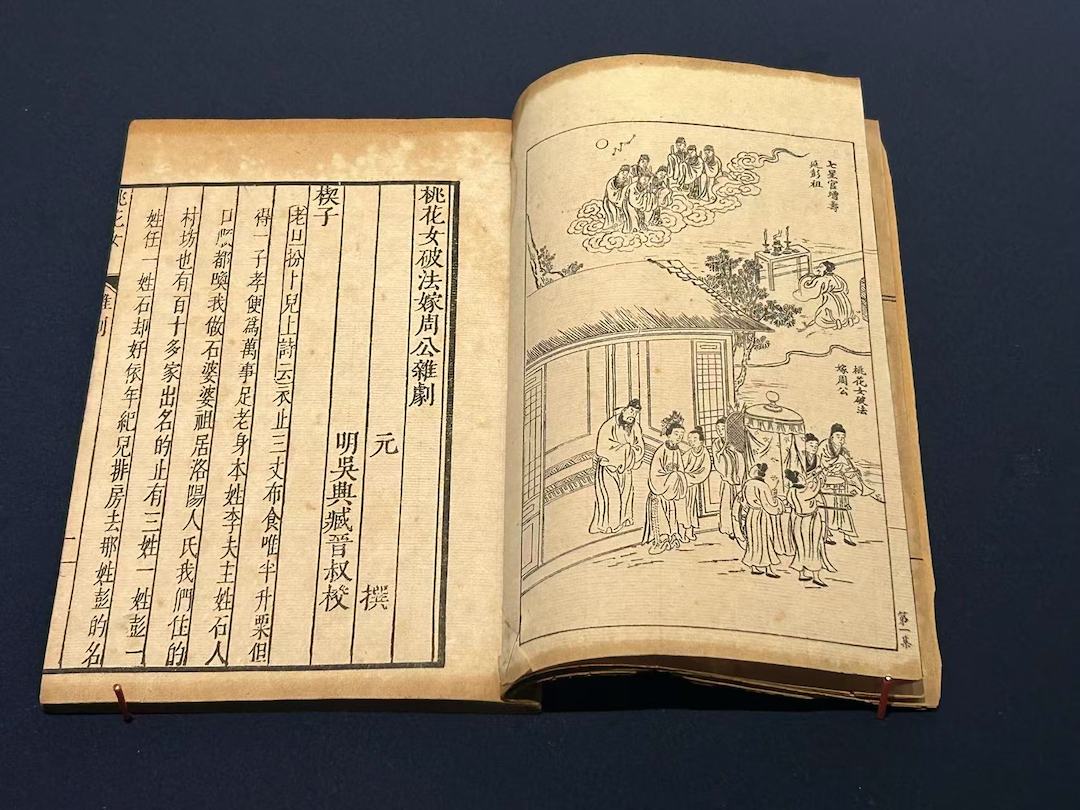 七星官增壽
延彭祖
桃花女破法
嫁周公
第一集
桃花女破法嫁周公雜劇
元 撰
明吳興臧晉叔挍
楔子
老旦扮卜兒上詩云衣止三丈布食唯半升粟但
得一子孝便爲萬事足老身本姓李夫主姓石人
口順都喚我做石婆婆祖居洛陽人氏我們住的
村坊也有百十多家出名的止有三姓一姓彭一
姓任一姓石却好依年紀兒排房去那姓彭的名
桃花女 雜劇